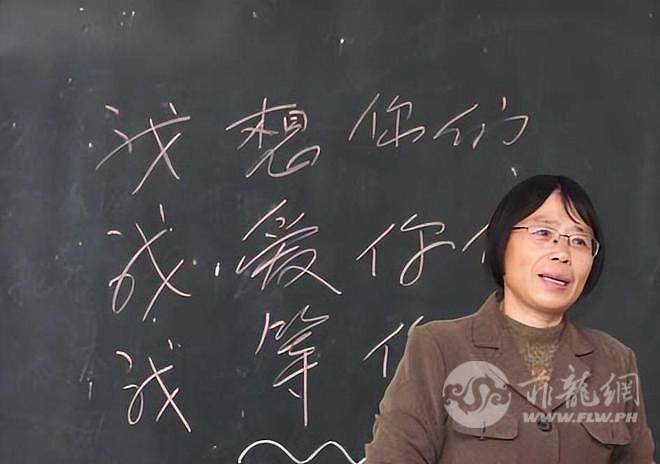 我想你们
我爱你
我等
菲龍網
WWW.FLW.PH